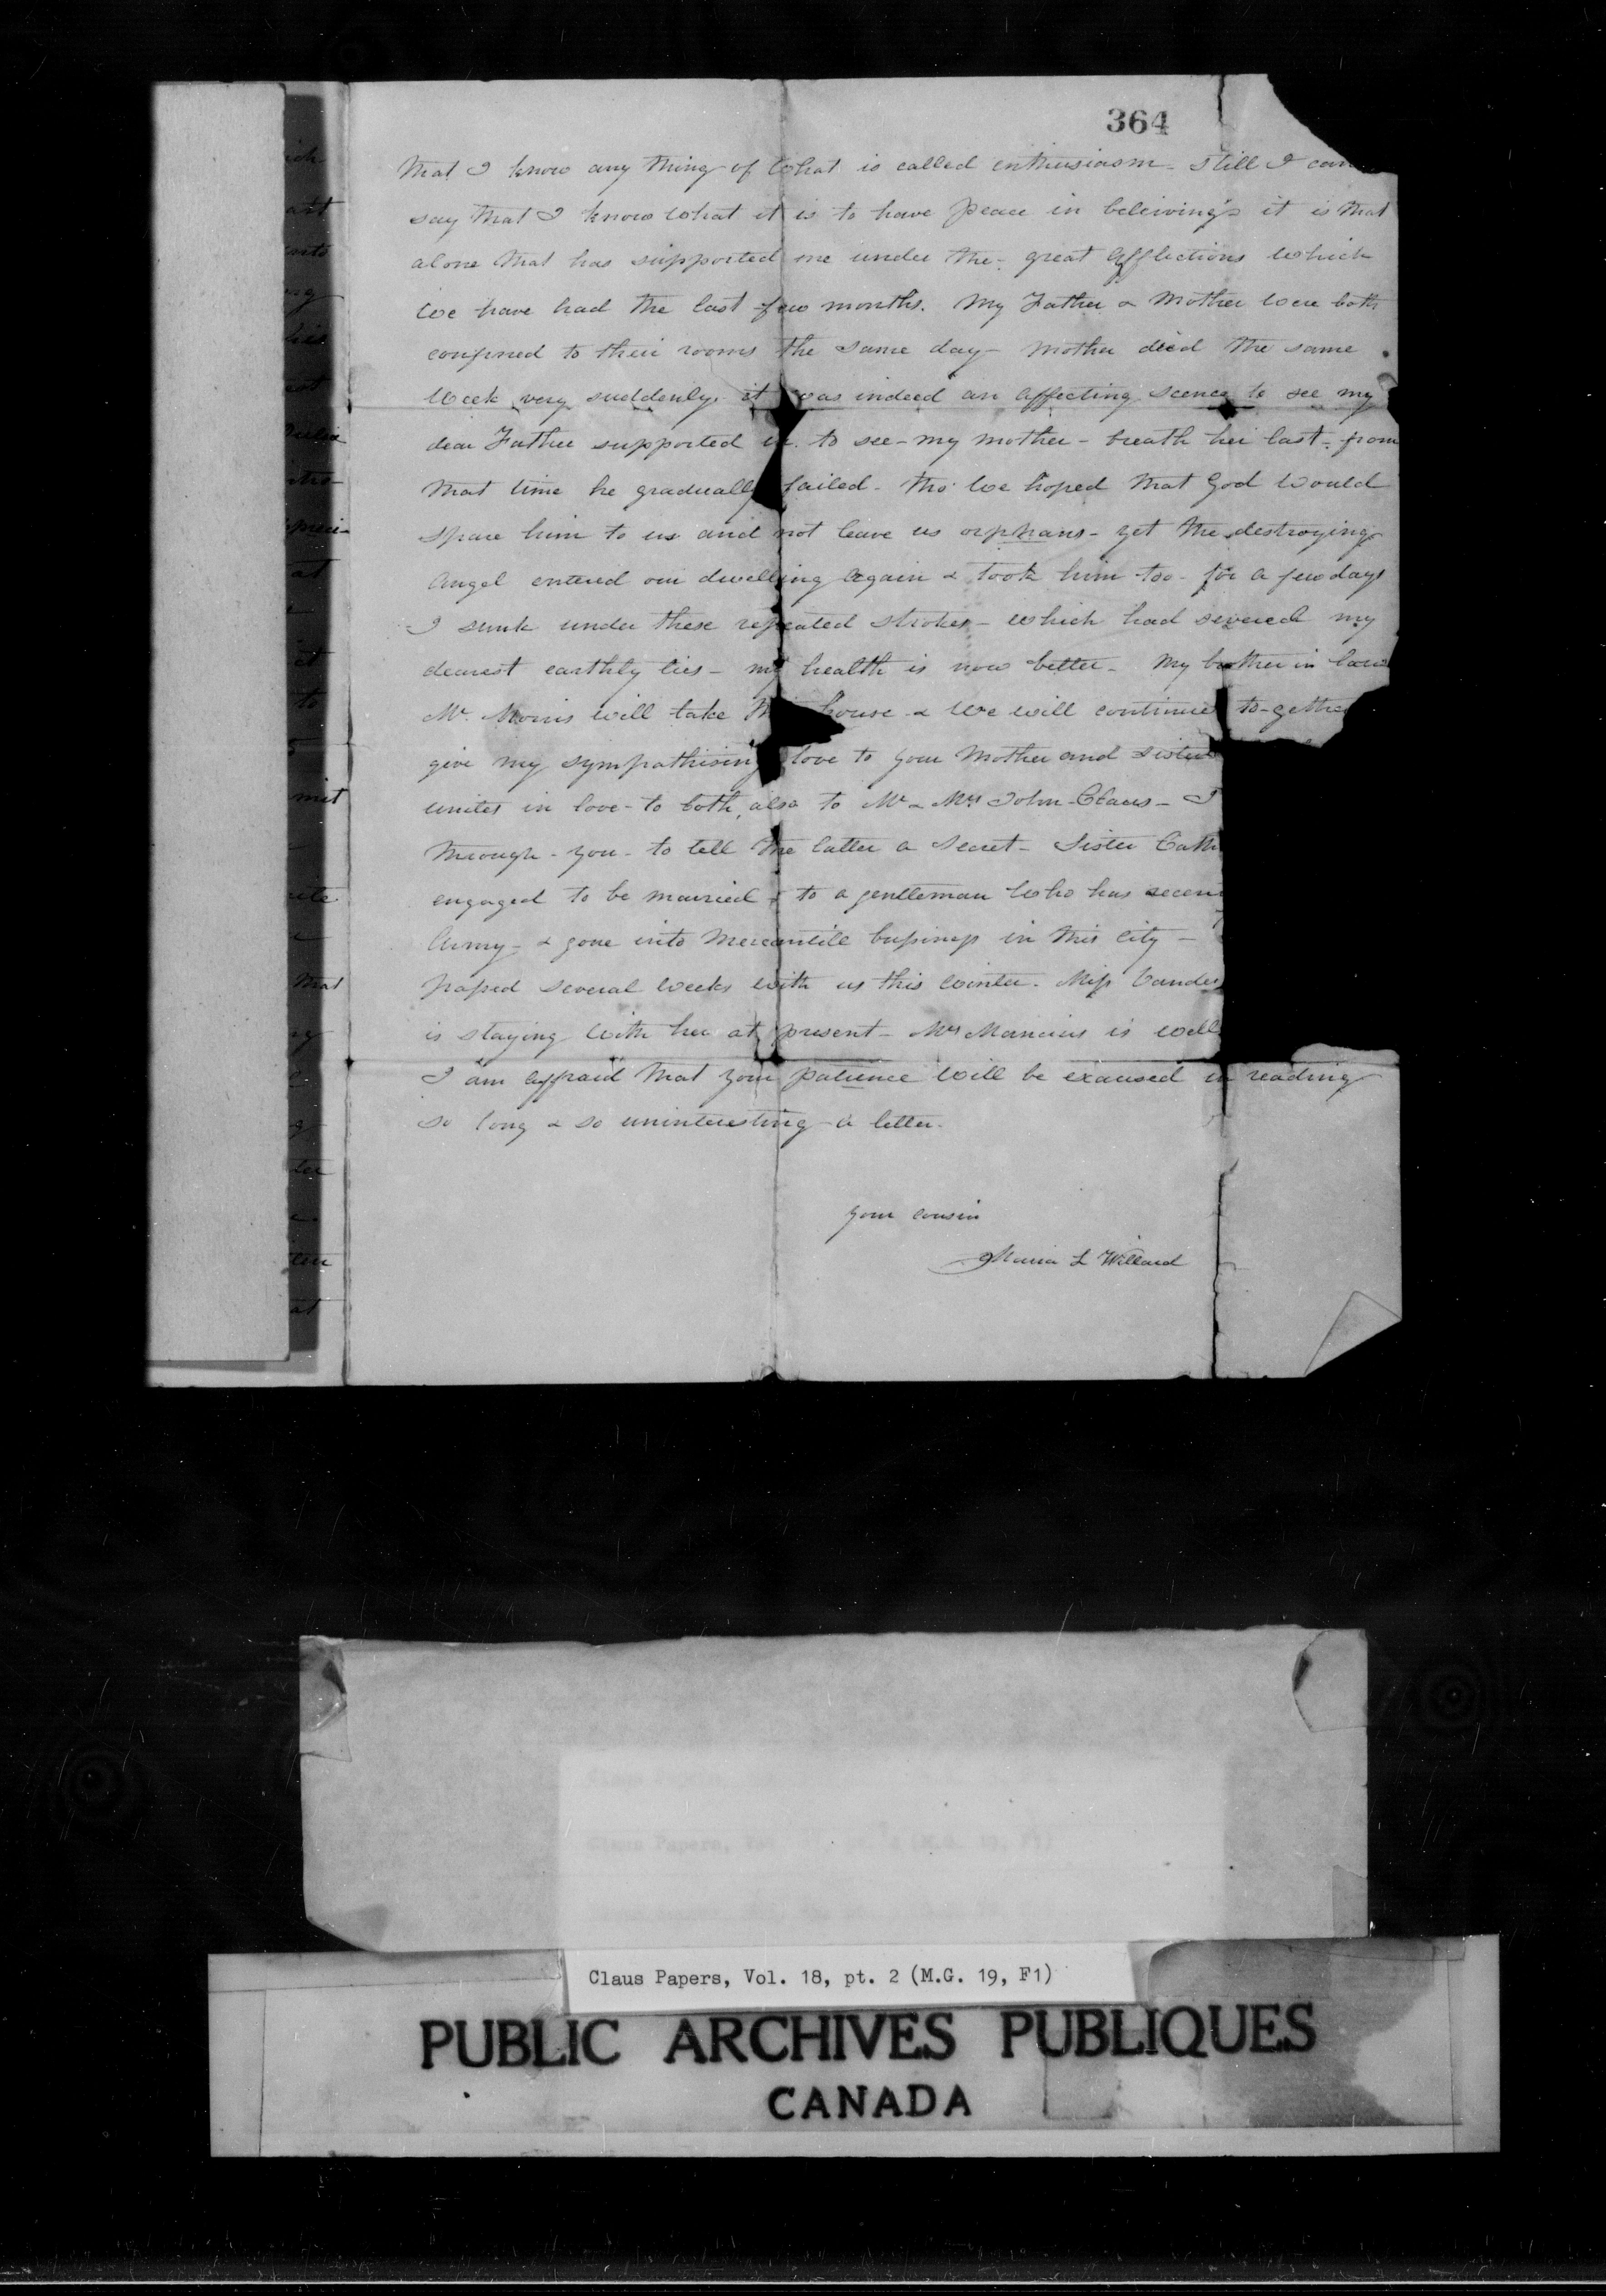 364
that I know any thing of what is called enthusiasm - still I can
say that I know what it is to have peace in beleiving & it is that
alone that has supported me under the great afflictions which
we have had the last few months. My Father & Mother were both
confined to their rooms the same day - Mother died the same
week very suddenly. it was indeed an affecting scence to see my
dear Father supported in to see - my mother - breath her last - from
that time he gradually failed - tho' we hoped that God would
spare him to us and not leave us orphans - yet the destroying
Angel entered our dwelling again & took him too - for a few days
I sunk under these repeated strokes - which had severed my
dearest earthly ties - my health is now better - My brother in law
Mr. Morris will take house & we will continue to-gether
give my sympathising love to your Mother and sister
unites in love - to both, also to Mr & Mrs John Claus - I
through - you - to tell the latter a secret - Sister Cath
engaged to be married & to a gentleman who has recen
Army - & gone into Mercantile business in this City -
passed several weeks with us this winter. Miss Vander
is staying with her at present - Mrs Mancius is well
I am affraid that your patience will be exaused in reading
so long & so uninteresting a letter.
your cousin
Maria L Willard
ich
art
into
ng
his
at
it
to
mit
ite
that
ng
ter
at
Claus Papers, Vol. 18, pt. 2 (M.G. 19, F1)
PUBLIC ARCHIVES PUBLIQUES
CANADA